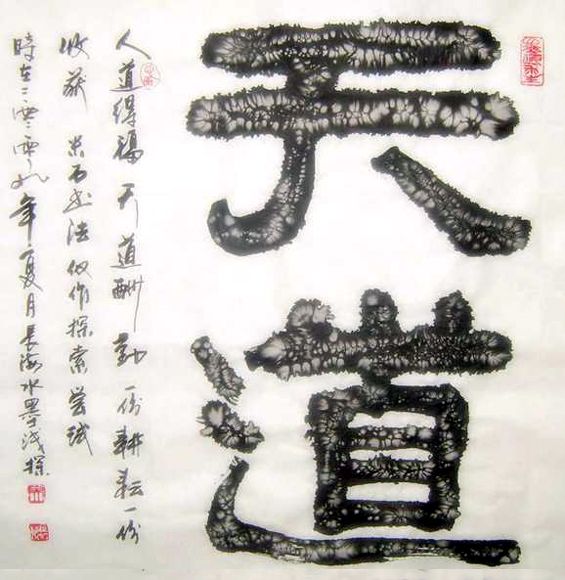 天道
人道得福天道酬勤一份耕耘一份
收获 米石书法仅作探索尝试
時在二零零九年夏月长海水墨浅探